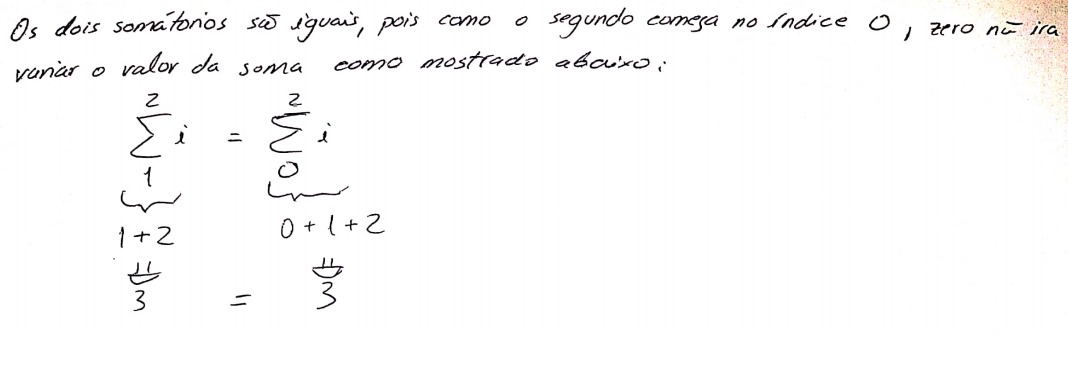 Os dois somátorios sã iguais, pois como o segundo começa no índice 0, zero nã ira
variar o valor da soma como mostrado abaixo:
2 2
∑ i = ∑ i
1 0
1+2 0+1+2
3 = 3